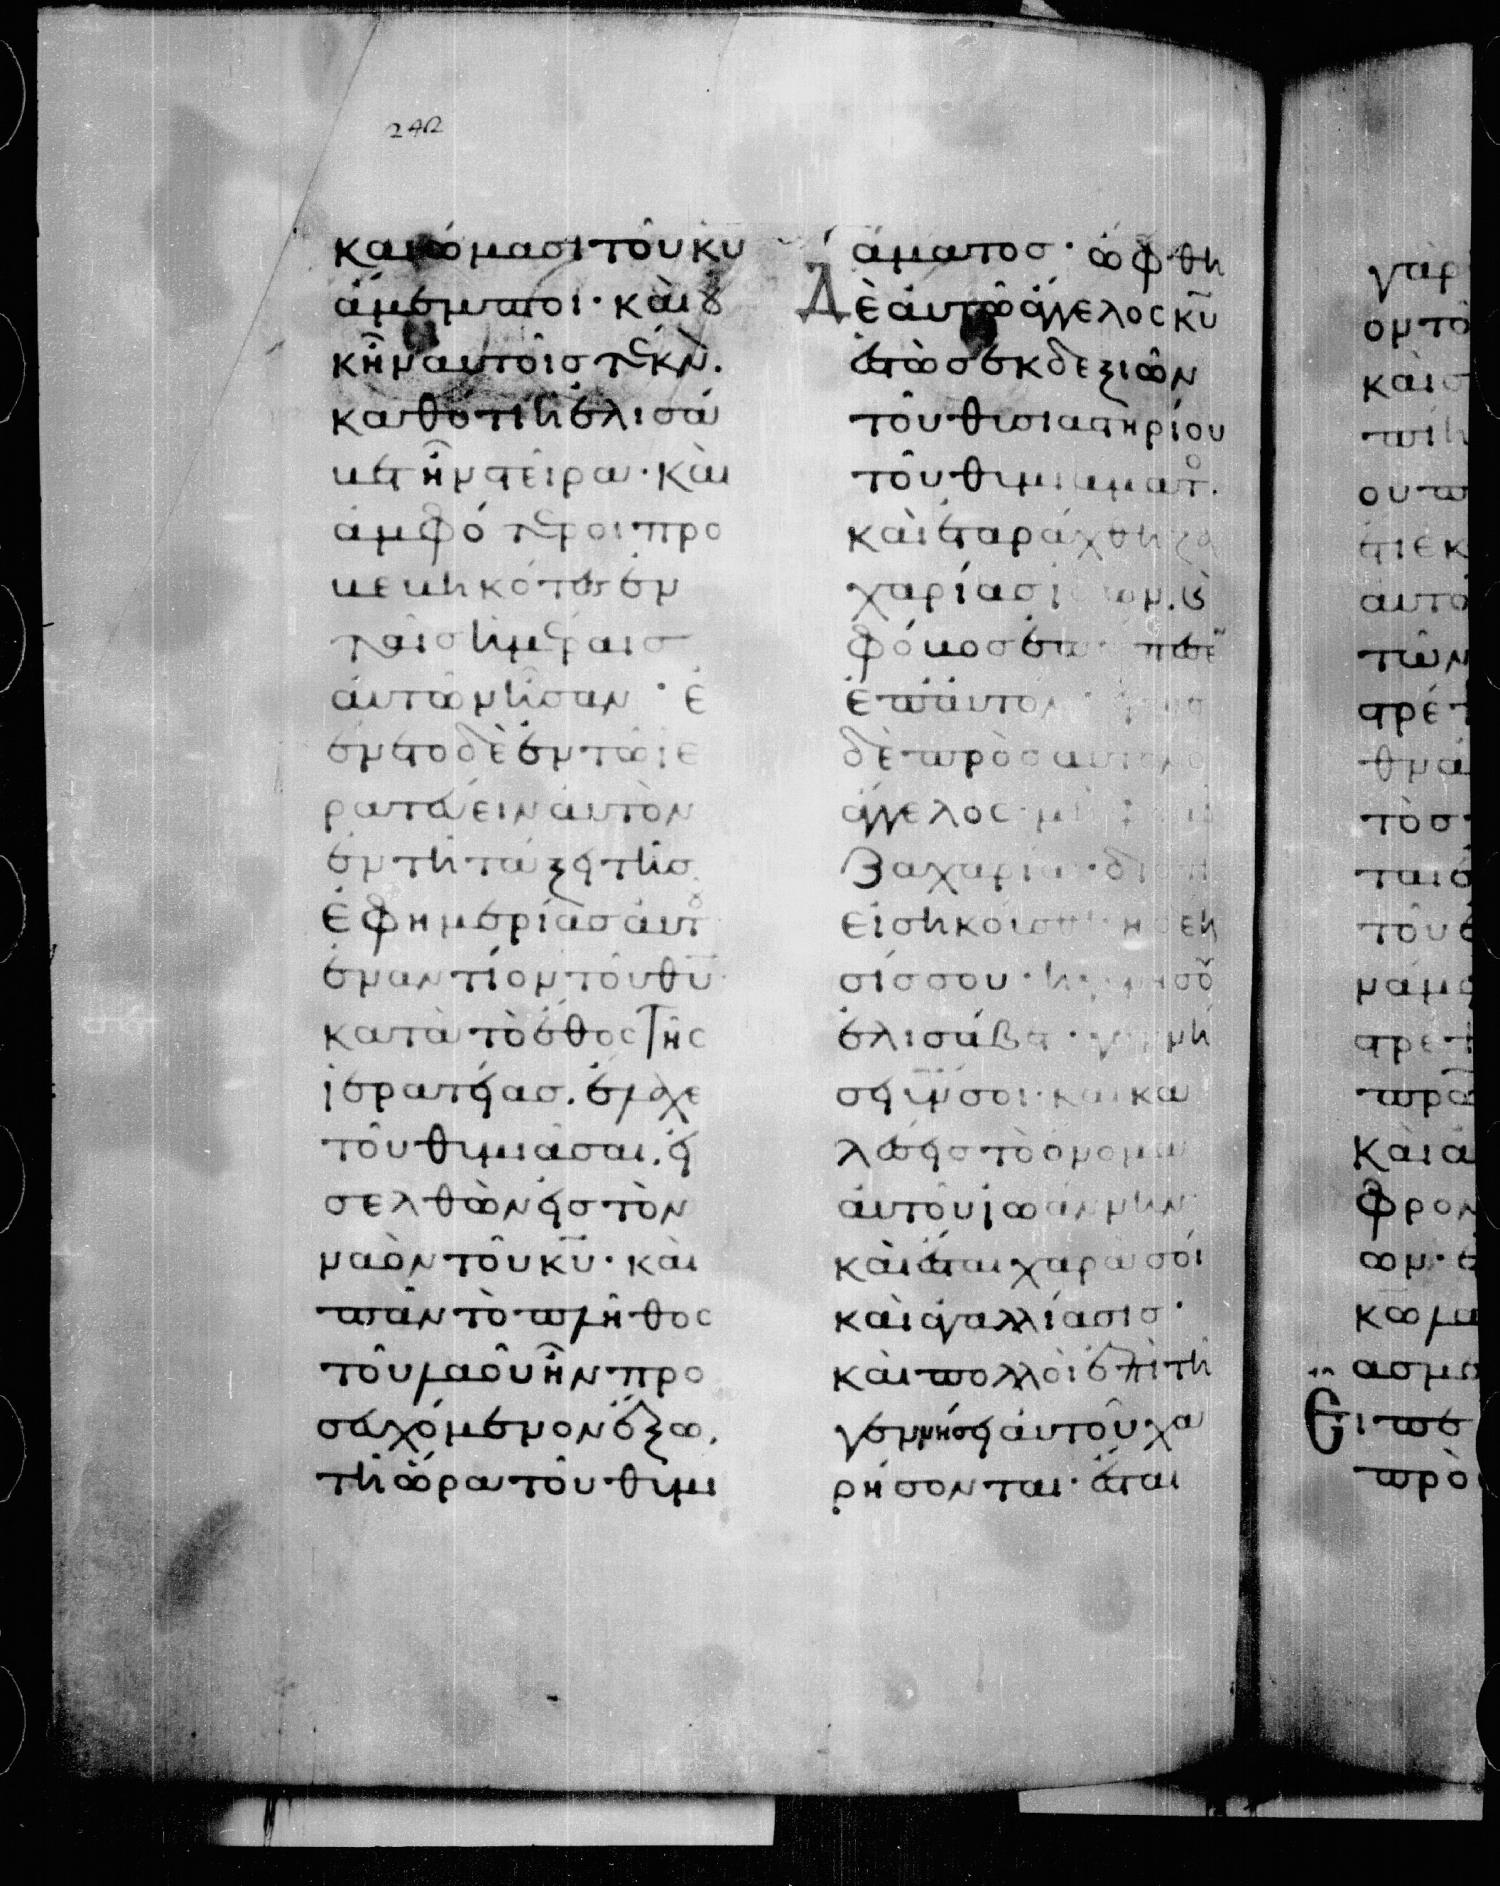 242
καιώμασι τοῦ κυ
ἄμεμπτοι· καὶ ȣ
κ ἦν αυτοῖς τέκν.
καθότι ἡ ἐλισά
βετ ἦν στεῖρα· καὶ
ἀμφότεροι προ
βεβηκότες ἐν
ταῖς ἡμέραις
ἀυτῶν ἦσαν· ἐ
γένετο δὲ ἐν τῶ ἱε
ρατεύειν ἀυτὸν
ἐν τῆ τάξει τῆς
ἐφημερίας ἀυτȣ
ἐναντίον τοῦ θυ
κατὰ τὸ ἔθος τῆς
ἱερατείας. ἔλαχε
τοῦ θυμιᾶσαι. εἰ
σελθὼν εἰς τὸν
ναὸν τοῦ κυ· καὶ
πᾶν τὸ πλῆθος
τοῦ λαοῦ ἦν προ
σευχόμενον ἔξω.
τῆ ὥρα τοῦ θυμι
άματος· ὤφθη
Δὲ ἀυτῶ ἄγγελος κυ
ἑστὼς ἐκ δεξιῶν
τοῦ θυσιαστηρίου
τοῦ θυμιάματο.
καὶ ἐταράχθη ζα
χαρίας ἰδών. καὶ
φόβος ἐπέπεσεν
ἐπ' ἀυτόν· εἶπε
δὲ πρὸς αυτὸν ὁ
ἄγγελος· μὴ φοβοῦ
Ζαχαρία· διότι
εἰσηκούσθη ἡ δέη
σίς σου· καὶ ἡ γυνή σȣ
ἐλισάβετ· γεννή
σει υἱόν σοι· καὶ κα
λέσεις τὸ ὄνομα
ἀυτοῦ ἰωάννην
καὶ ἔσται χαρά σοί
καὶ ἀγαλλίασις·
καὶ πολλοὶ ἐπὶ τῆ
γεννήσει ἀυτοῦ χα
ρήσονται· ἔσται
γὰρ
ον το
καὶ σ
ουπ
αυτο
τῶν
στρέ
τὸσ
ταισ
τοῦ
στρε
προ
Καὶ ἀ
φρον
ων·
Εἶπε
πρὸ